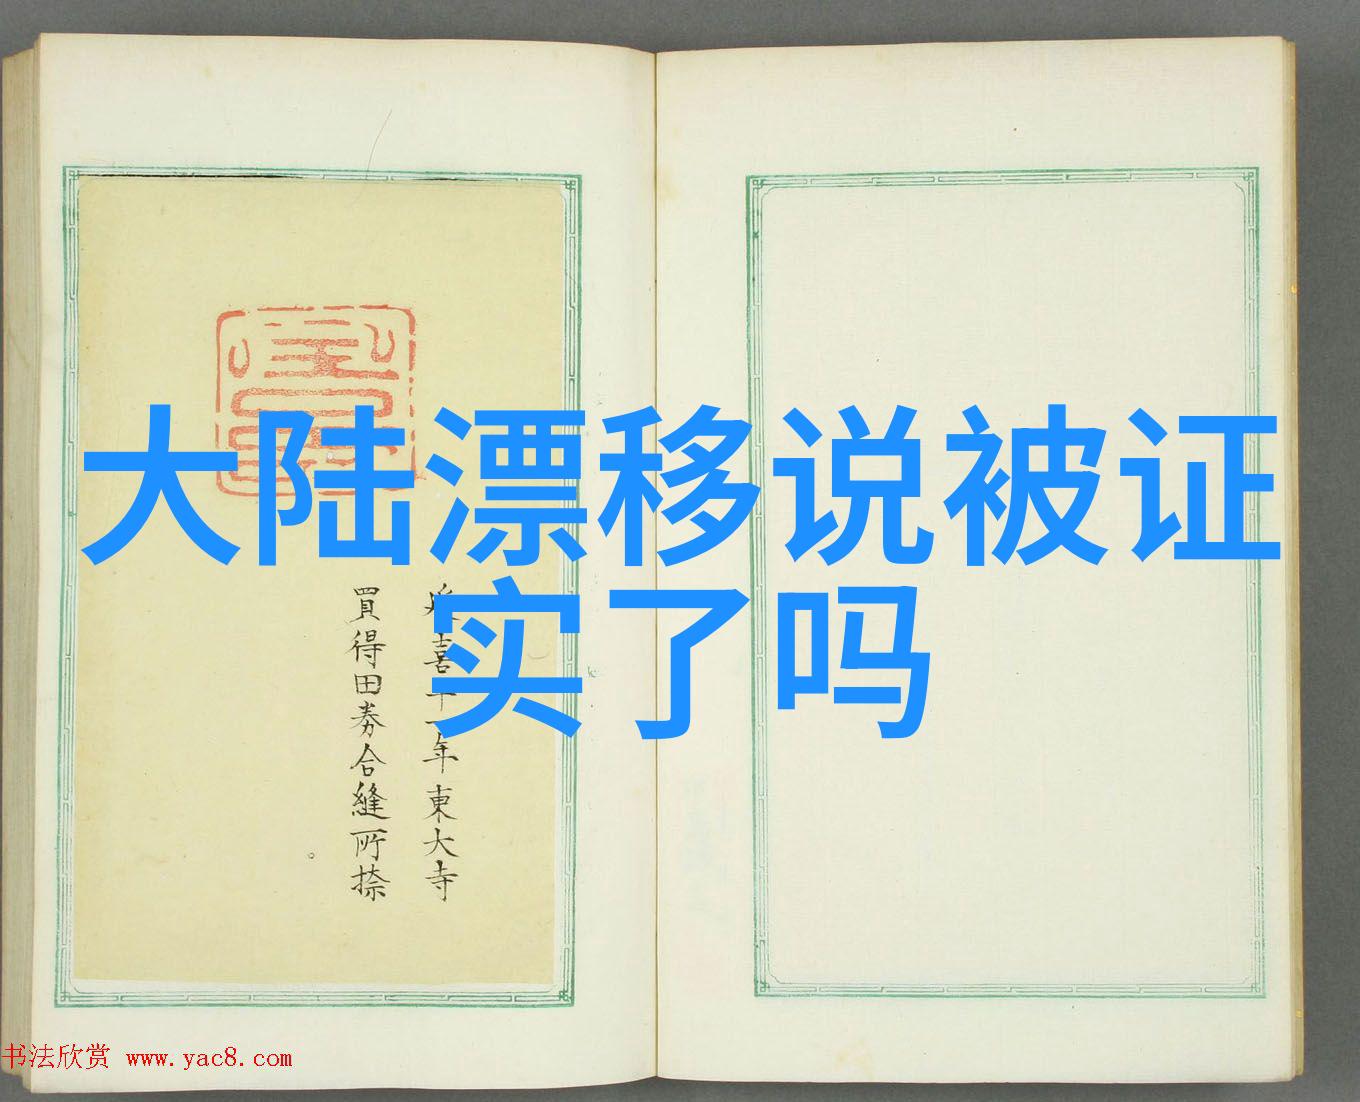 大陆漂移说被证
实了吗
喜十一年東大寺
買得田券合縫所捺
书法欣赏 www.yac8.com